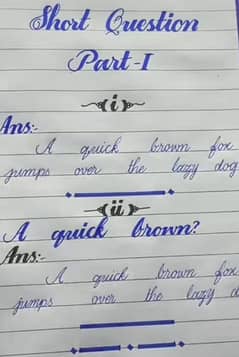 Short Question
Part-I
i
Ans:-
A quick brown fox
jumps over the lazy dog
ii
A quick brown?
Ans:-
A quick brown fox
jumps over the lazy d